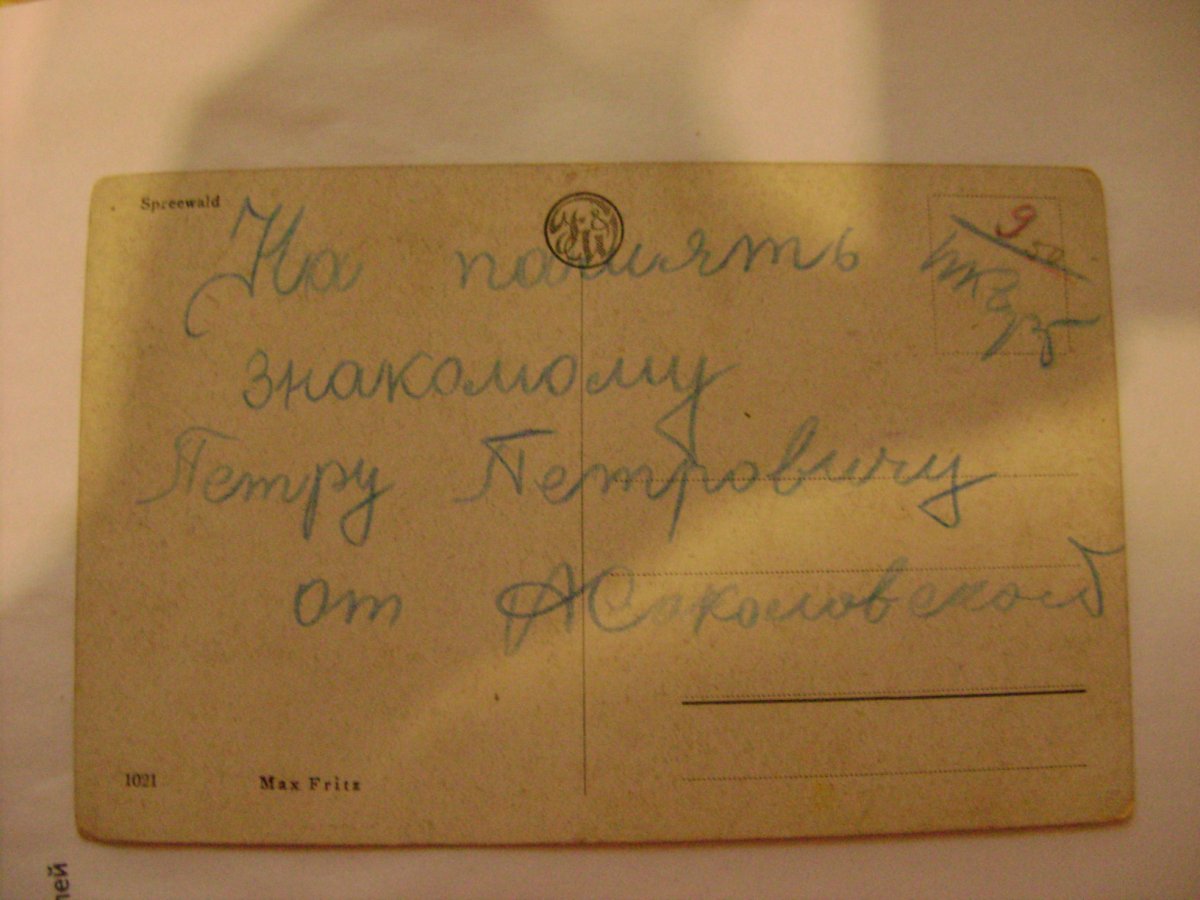 Spreewald
На память
знакомому
Петру Петровичу
от АСоколовской
9
50
1021
Max Fritz
лей